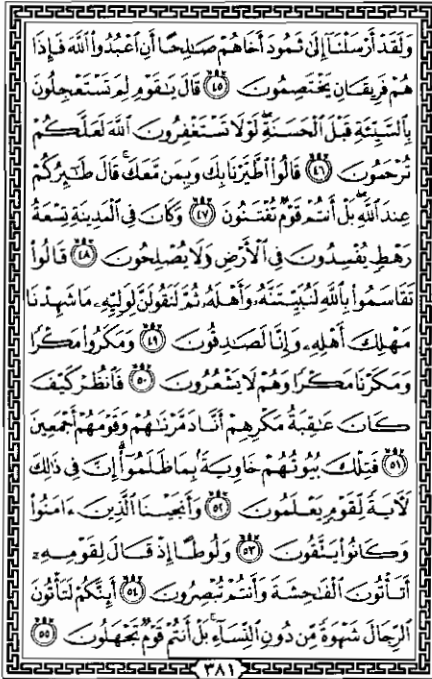 وَلَقَدْ أَرْسَلْنَآ إِلَىٰ ثَمُودَ أَخَاهُمْ صَٰلِحًا أَنِ ٱعْبُدُوا۟ ٱللَّهَ فَإِذَا
هُمْ فَرِيقَانِ يَخْتَصِمُونَ ٤٥ قَالَ يَٰقَوْمِ لِمَ تَسْتَعْجِلُونَ
بِٱلسَّيِّئَةِ قَبْلَ ٱلْحَسَنَةِ ۖ لَوْلَا تَسْتَغْفِرُونَ ٱللَّهَ لَعَلَّكُمْ
تُرْحَمُونَ ٤٦ قَالُوا۟ ٱطَّيَّرْنَا بِكَ وَبِمَن مَّعَكَ ۚ قَالَ طَٰٓئِرُكُمْ
عِندَ ٱللَّهِ ۖ بَلْ أَنتُمْ قَوْمٌ تُفْتَنُونَ ٤٧ وَكَانَ فِى ٱلْمَدِينَةِ تِسْعَةُ
رَهْطٍ يُفْسِدُونَ فِى ٱلْأَرْضِ وَلَا يُصْلِحُونَ ٤٨ قَالُوا۟
تَقَاسَمُوا۟ بِٱللَّهِ لَنُبَيِّتَنَّهُۥ وَأَهْلَهُۥ ثُمَّ لَنَقُولَنَّ لِوَلِيِّهِۦ مَا شَهِدْنَا
مَهْلِكَ أَهْلِهِۦ وَإِنَّا لَصَٰدِقُونَ ٤٩ وَمَكَرُوا۟ مَكْرًا
وَمَكَرْنَا مَكْرًا وَهُمْ لَا يَشْعُرُونَ ٥٠ فَٱنظُرْ كَيْفَ
كَانَ عَٰقِبَةُ مَكْرِهِمْ أَنَّا دَمَّرْنَٰهُمْ وَقَوْمَهُمْ أَجْمَعِينَ
٥١ فَتِلْكَ بُيُوتُهُمْ خَاوِيَةًۢ بِمَا ظَلَمُوٓا۟ ۗ إِنَّ فِى ذَٰلِكَ
لَءَايَةً لِّقَوْمٍ يَعْلَمُونَ ٥٢ وَأَنجَيْنَا ٱلَّذِينَ ءَامَنُوا۟
وَكَانُوا۟ يَتَّقُونَ ٥٣ وَلُوطًا إِذْ قَالَ لِقَوْمِهِۦٓ
أَتَأْتُونَ ٱلْفَٰحِشَةَ وَأَنتُمْ تُبْصِرُونَ ٥٤ أَئِنَّكُمْ لَتَأْتُونَ
ٱلرِّجَالَ شَهْوَةً مِّن دُونِ ٱلنِّسَآءِ ۚ بَلْ أَنتُمْ قَوْمٌ تَجْهَلُونَ ٥٥
٣٨١